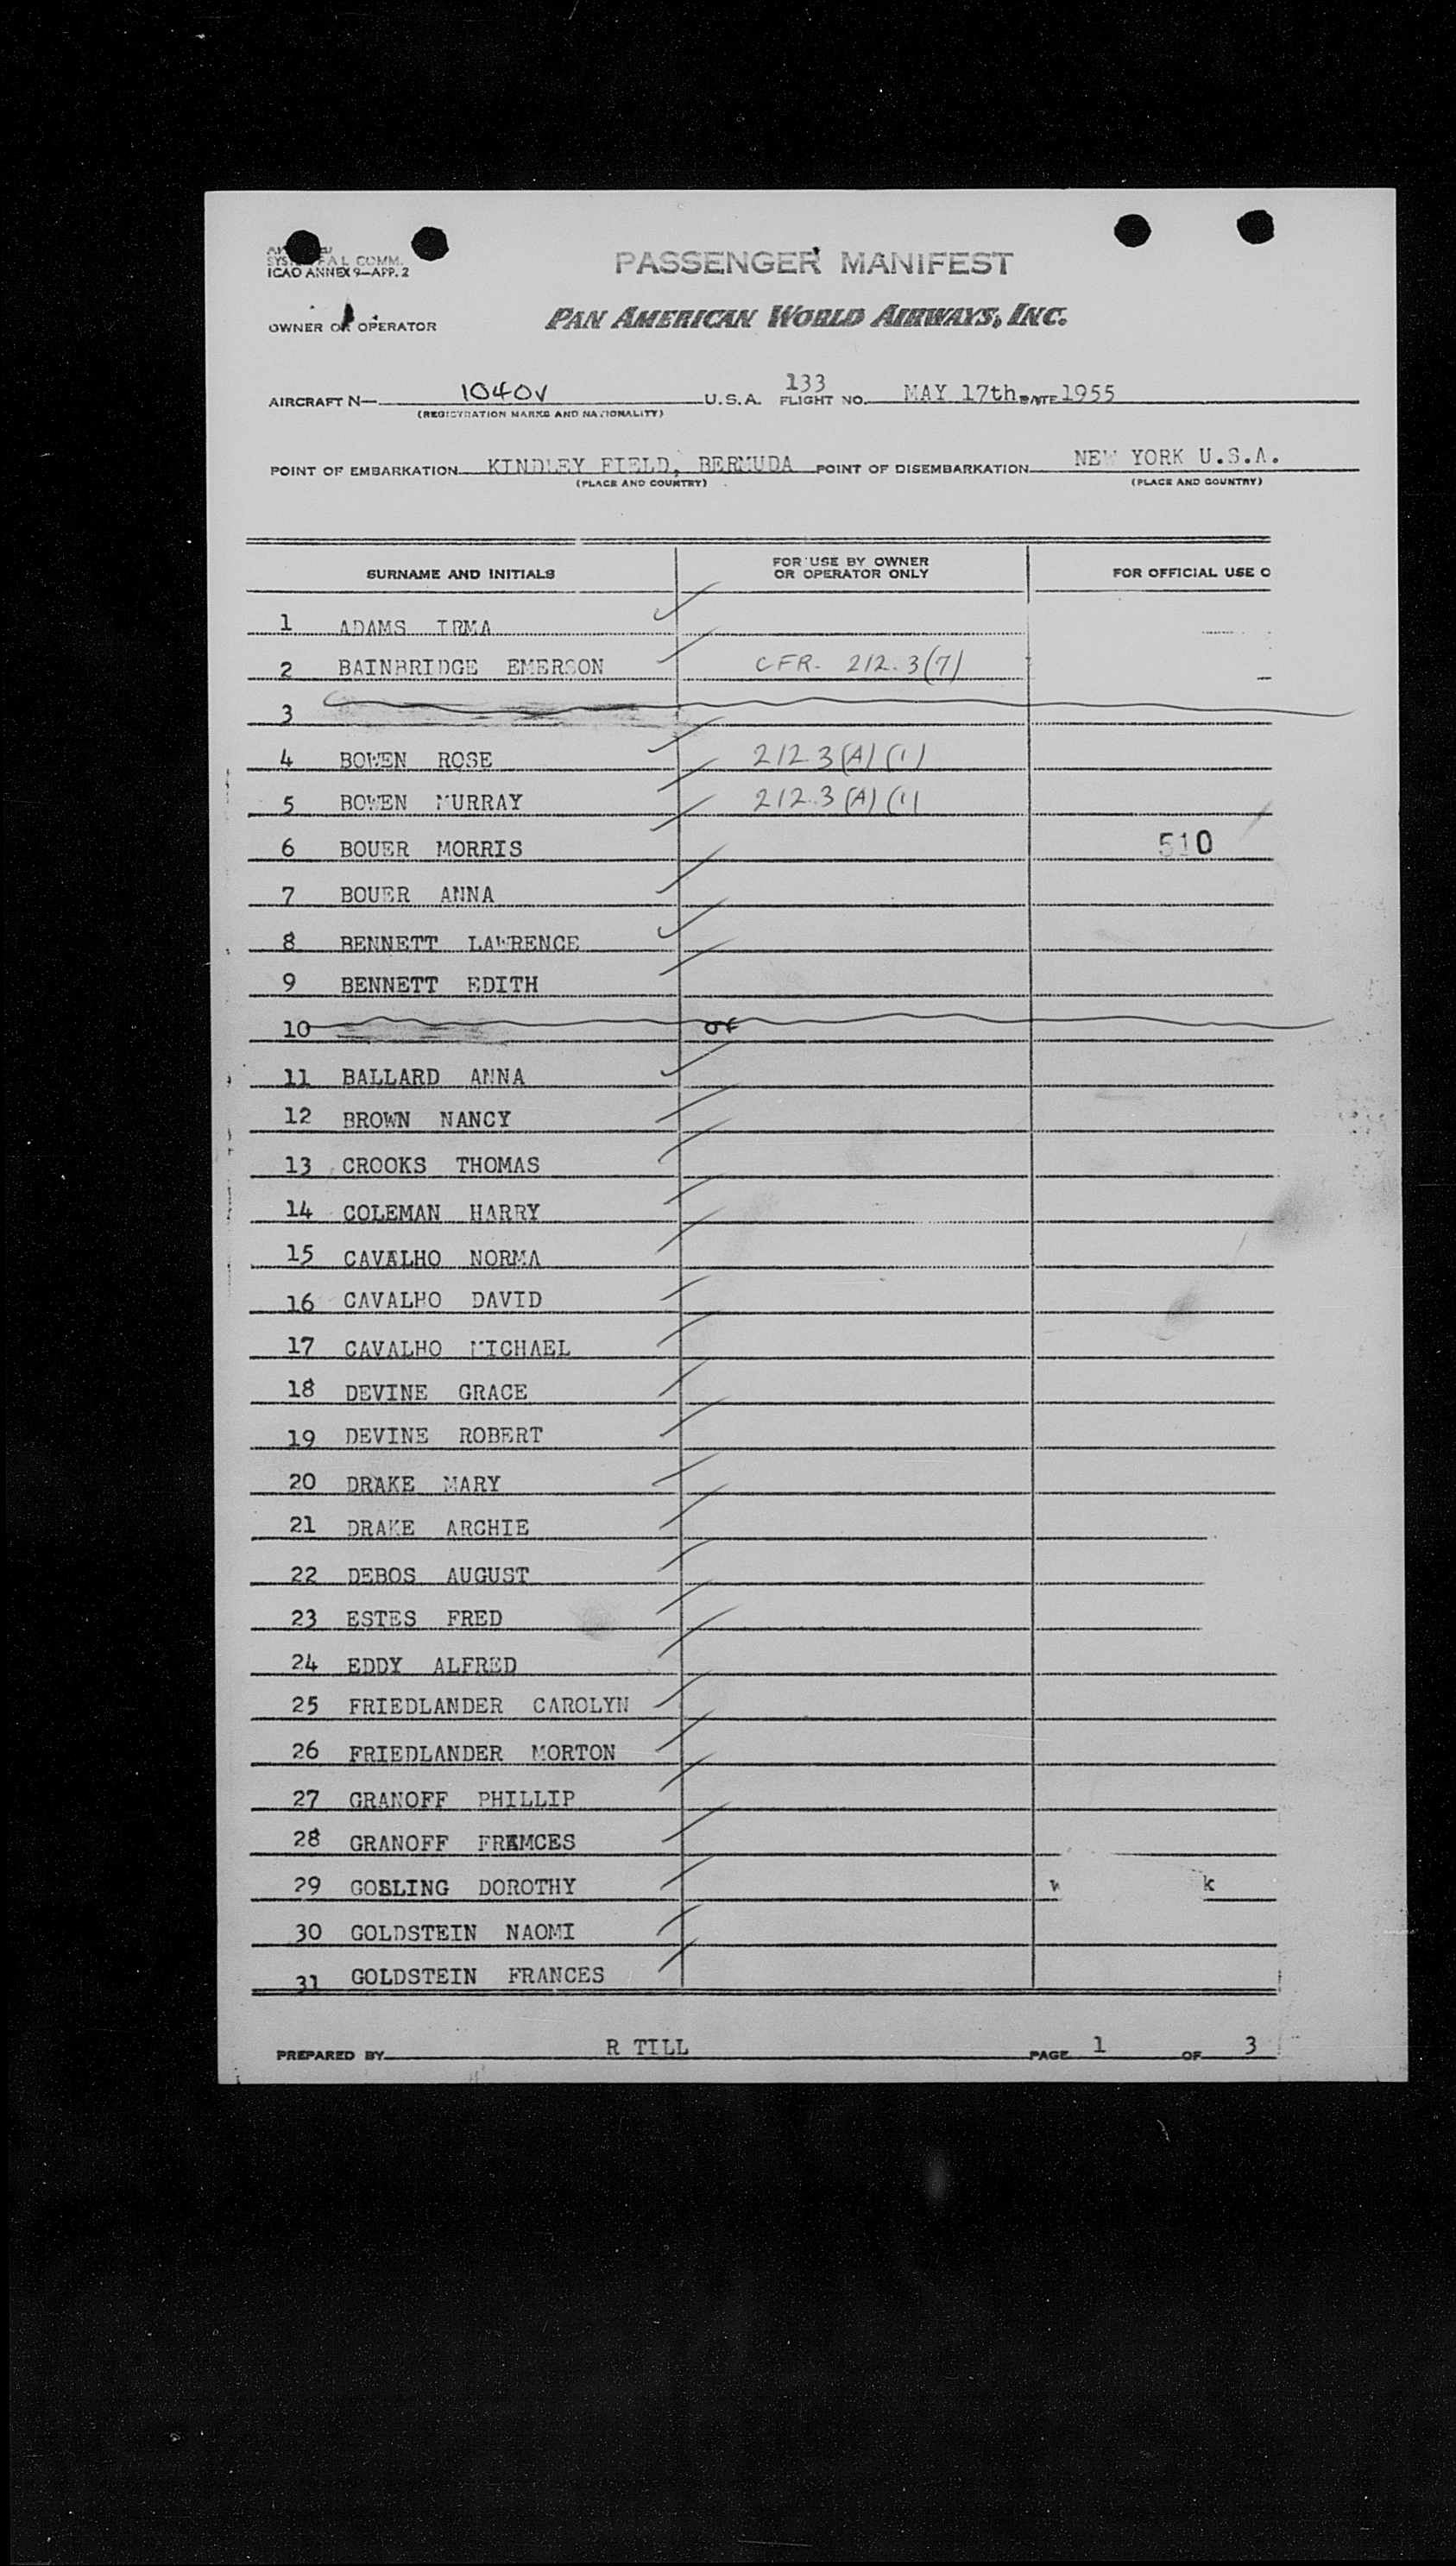 PASSENGER MANIFEST
ICAO ANNEX 9—APP. 2
OWNER OR OPERATOR PAN AMERICAN WORLD AIRWAYS, INC.
AIRCRAFT N— 1040V U.S.A. 133 FLIGHT NO. MAY 17th DATE 1955
(REGISTRATION MARKS AND NATIONALITY)
POINT OF EMBARKATION KINDLEY FIELD, BERMUDA POINT OF DISEMBARKATION NEW YORK U.S.A.
(PLACE AND COUNTRY) (PLACE AND COUNTRY)
SURNAME AND INITIALS FOR USE BY OWNER OR OPERATOR ONLY FOR OFFICIAL USE O
1 ADAMS IRMA
2 BAINBRIDGE EMERSON CFR. 212.3(7)
3
4 BOWEN ROSE 212.3(A)(1)
5 BOWEN MURRAY 212.3(A)(1)
6 BOUER MORRIS 510
7 BOUER ANNA
8 BENNETT LAWRENCE
9 BENNETT EDITH
10
11 BALLARD ANNA
12 BROWN NANCY
13 CROOKS THOMAS
14 COLEMAN HARRY
15 CAVALHO NORMA
16 CAVALHO DAVID
17 CAVALHO MICHAEL
18 DEVINE GRACE
19 DEVINE ROBERT
20 DRAKE MARY
21 DRAKE ARCHIE
22 DEBOS AUGUST
23 ESTES FRED
24 EDDY ALFRED
25 FRIEDLANDER CAROLYN
26 FRIEDLANDER MORTON
27 GRANOFF PHILLIP
28 GRANOFF FRAMCES
29 GOSLING DOROTHY
30 GOLDSTEIN NAOMI
31 GOLDSTEIN FRANCES
PREPARED BY R TILL PAGE 1 OF 3